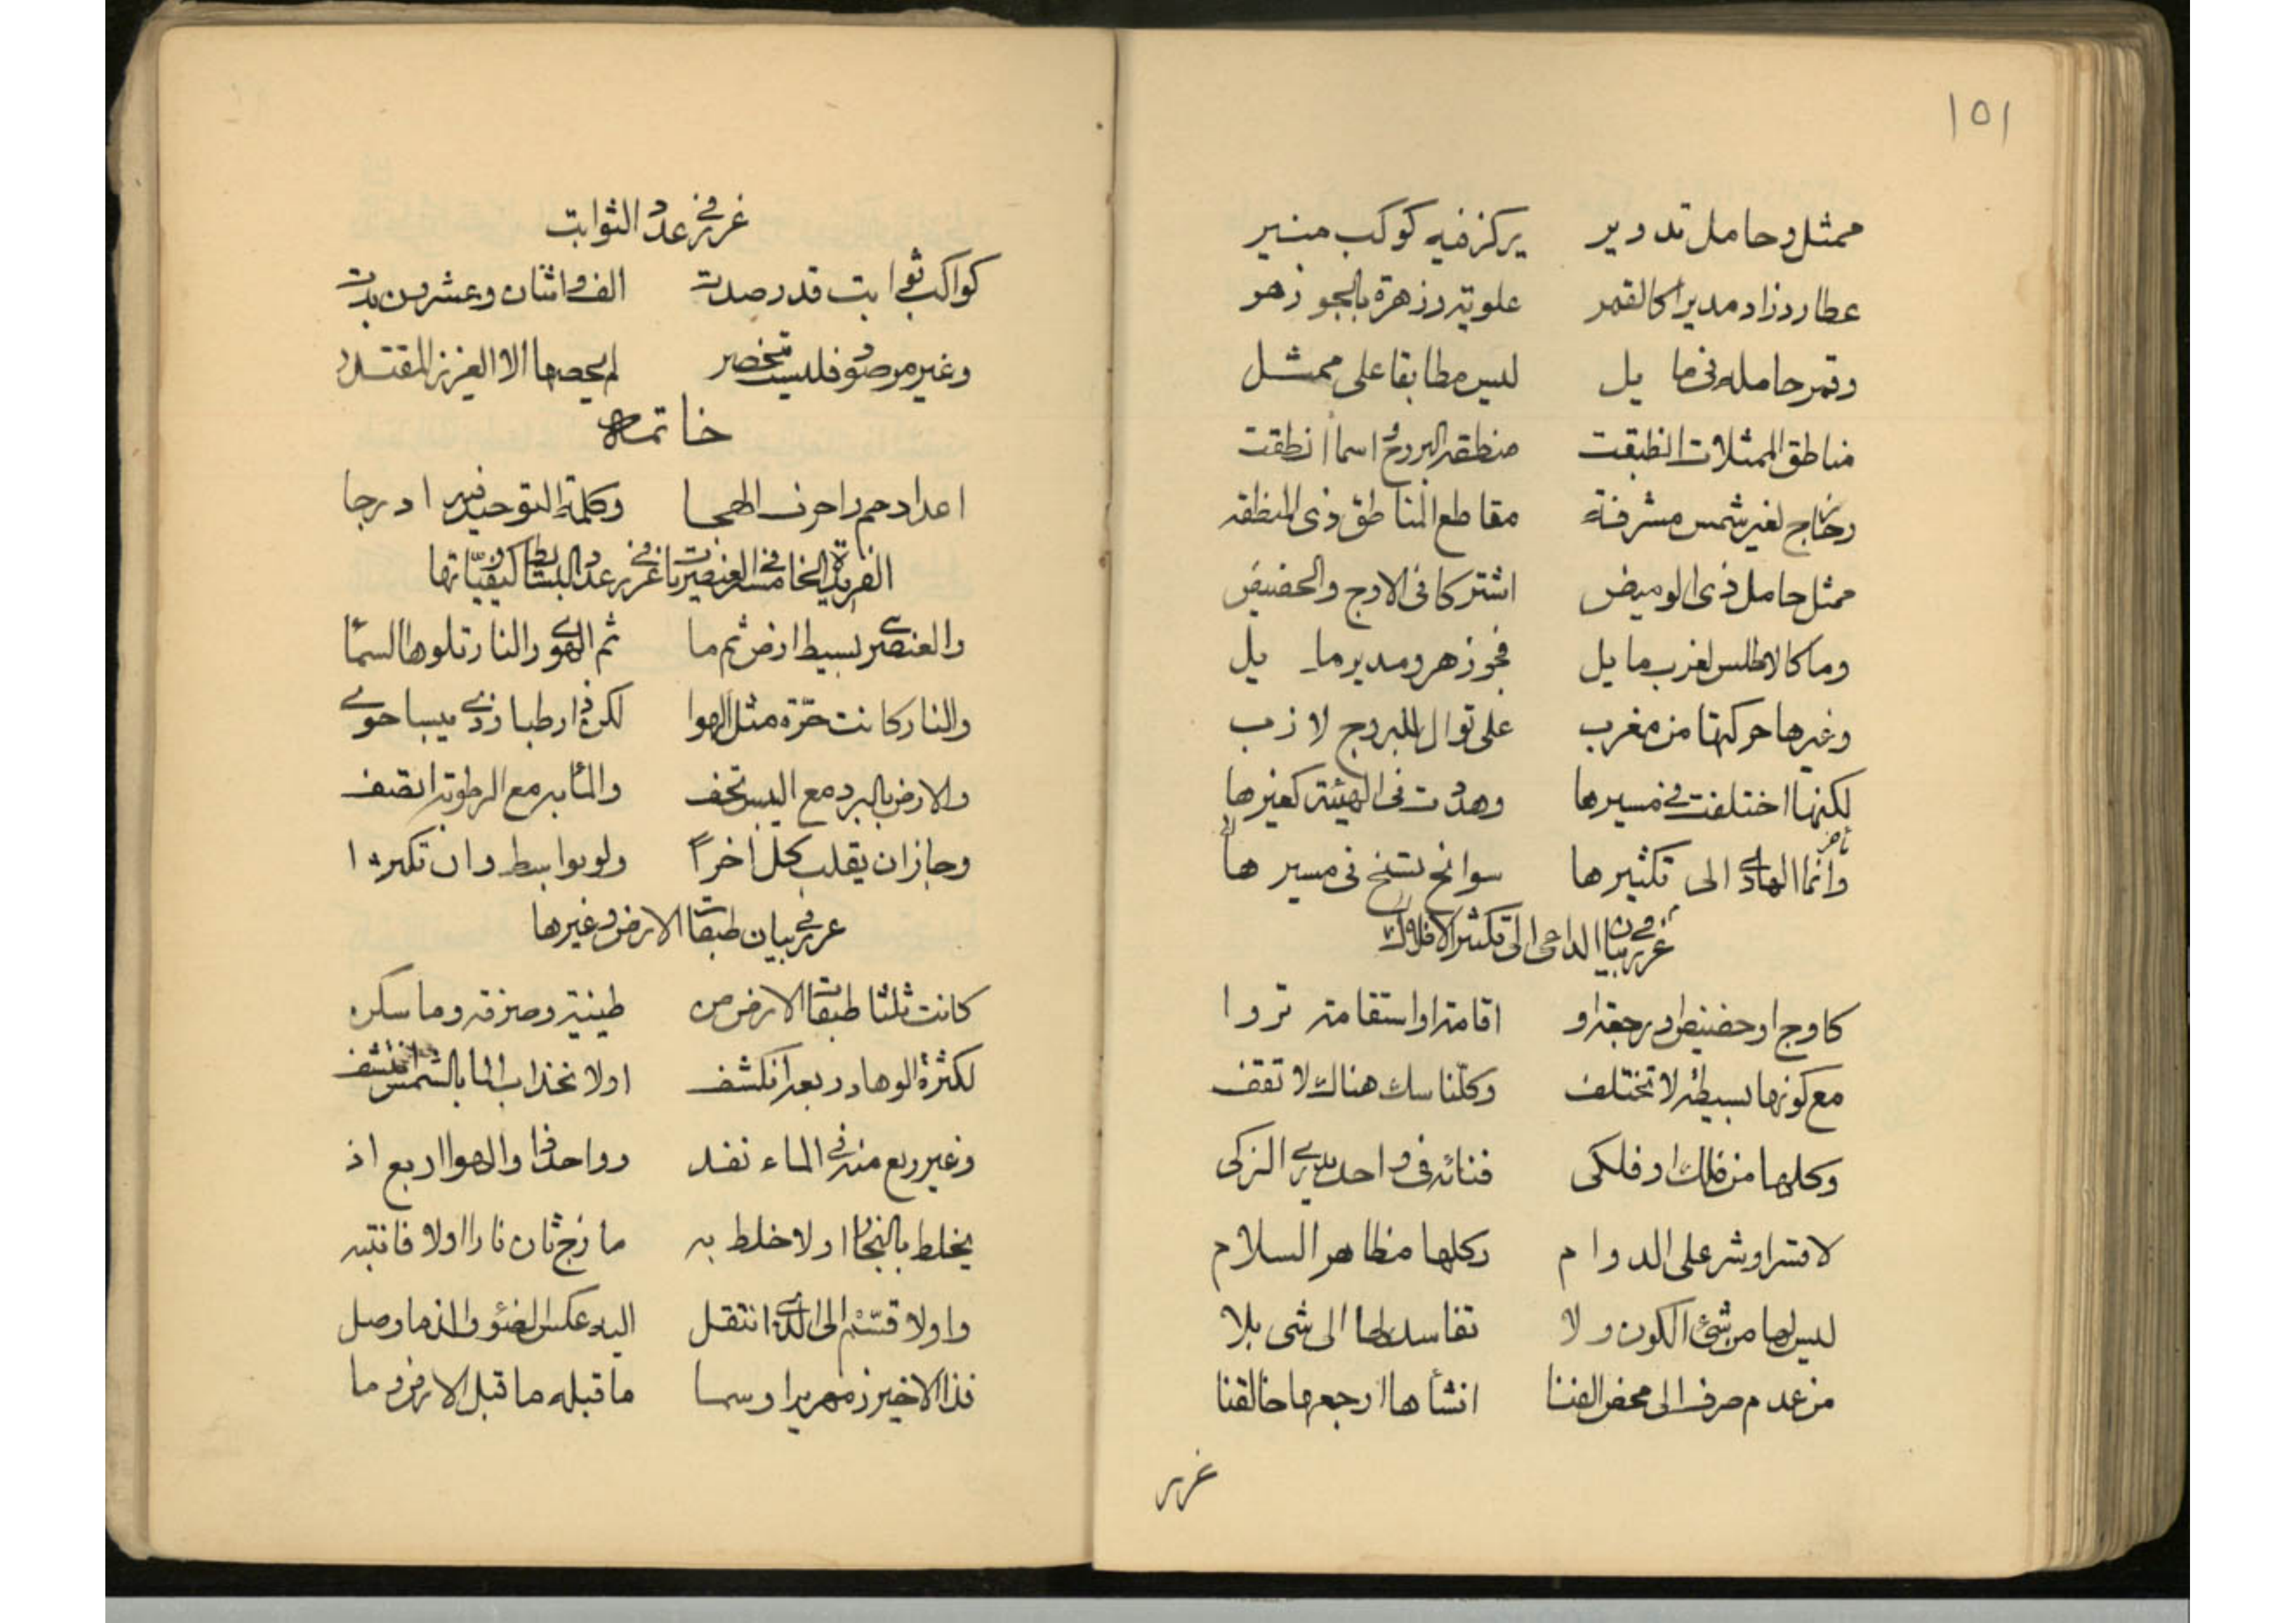 ١٥١
ممثل وحامل تدوير يركز فيه كوكب منير
عطارد زاد مديرا كالقمر علوية وزهرة بالجوزهر
وقمر حامله فى مايل ليس مطابقا على ممثل
مناطق الممثلات انطبقت منطقة البروج اسما انطقت
وخارج لغير شمس مشرفة مقاطع المناطق ذى المنطقه
ممثل حامل ذى الوميض اشتركا فى الاوج والحضيض
وما كالاطلس لغرب مايل فجوزهر ومدير مايل
وغيرها حركتها من مغرب على توال للبروج لازب
لكنها اختلفت فى مسيرها وهدت فى الهيئة كغيرها
وانما الهادى الى تكثيرها سوانح تسنح فى مسيرها
غرر فى بيان الداعى الى تكثير الافلاك
كاوج او حضيض او رجعة او اقامة او استقامة تروا
مع كونها بسيطة لا تختلف وكلنا سك هناك لا تقف
وكلها من فلك او فلكى فنائه فى واحد يرى الزكى
لا قسر او شر على الدوام وكلها مظاهر السلام
ليس لها من شئ الكون ولا تفاسد لها الى شى بلا
من عدم صرف الى محض الفنا انشأها ارجعها خالقنا
غرر
غرر فى عدد الثوابت
كواكب ثوابت قد رصدت الف واثنان وعشرون بدت
وغير مرصود فليست تنحصر لم يحصها الا العزيز المقتدر
خاتمه
اعداد حم واحرف الهجا وكلمة التوحيد فيه ادرجا
الفريدة الخامسة فى العنصريات غرر فى عدد البسائط وكيفياتها
والعنصرى بسيط ارض ثم ما ثم الهوى والنار تلوها السما
والنار كانت حرة مثل الهوا لكن ذا رطبا وذى يبسا حوى
والارض بالبرد مع اليبس تحف والما به مع الرطوبة اتصف
وجاز ان يقلب كل آخرا ولو بوا سط وان تكثرا
غرر فى بيان طبقات الارض وغيرها
كانت ثلثا طبقات الارض من طينية وصرفة وما سكن
لكثرة الوهاد ربعه انكشف او لانجذاب الما بالشمس
وغير ربع منه فى الماء نفد وواحد ذا والهوا اربع اذ
يخلط بالبخار او لا خلط به مازج ثان نارا اولا فانتبه
واولا قسم الى الذى انتقل اليه عكس الضوء والذ ما وصل
فذا الاخير زمهريرا وسما ما قبله ما قبل الارض وما